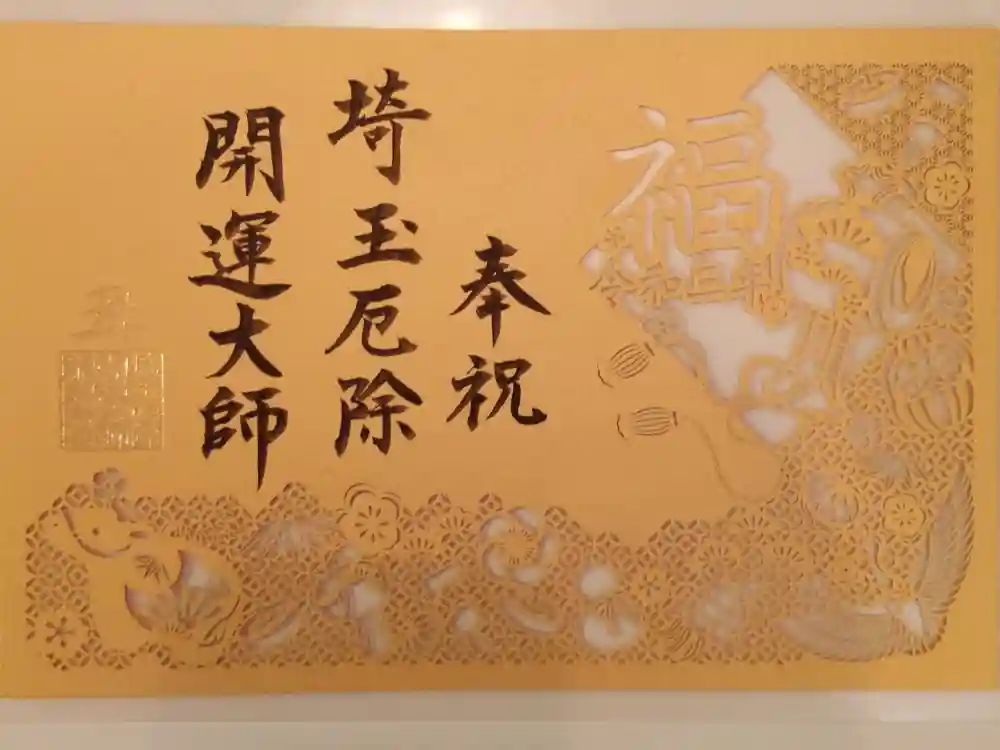 福
令和三年
奉祝
埼玉厄除
開運大師